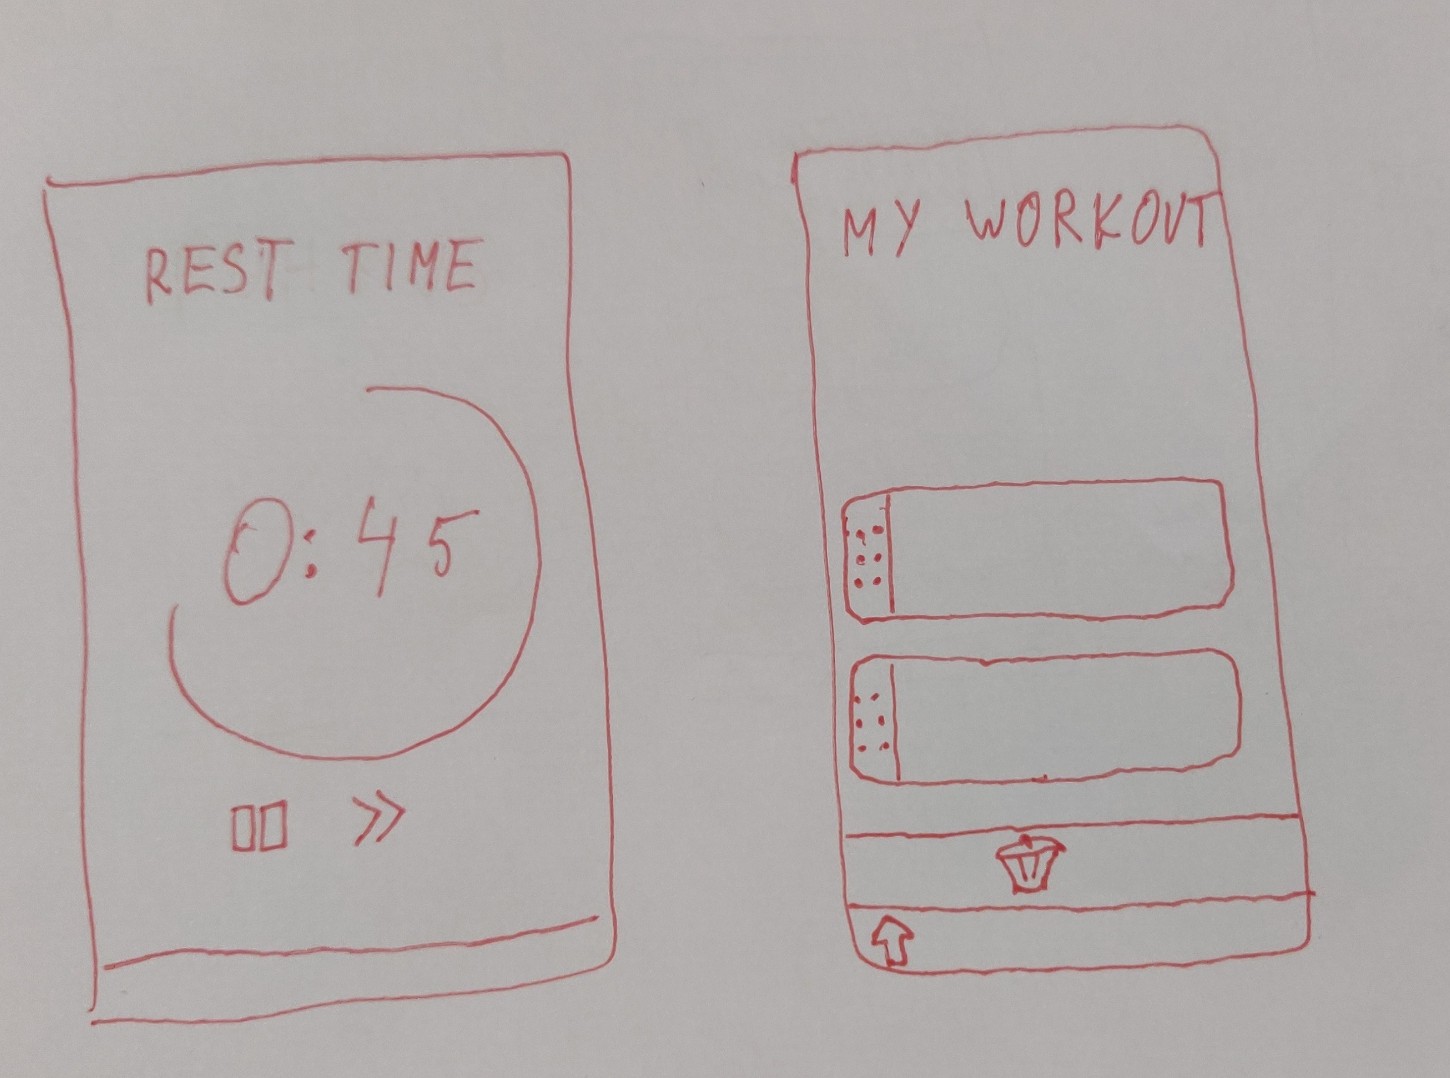 REST TIME
0:45
MY WORKOUT